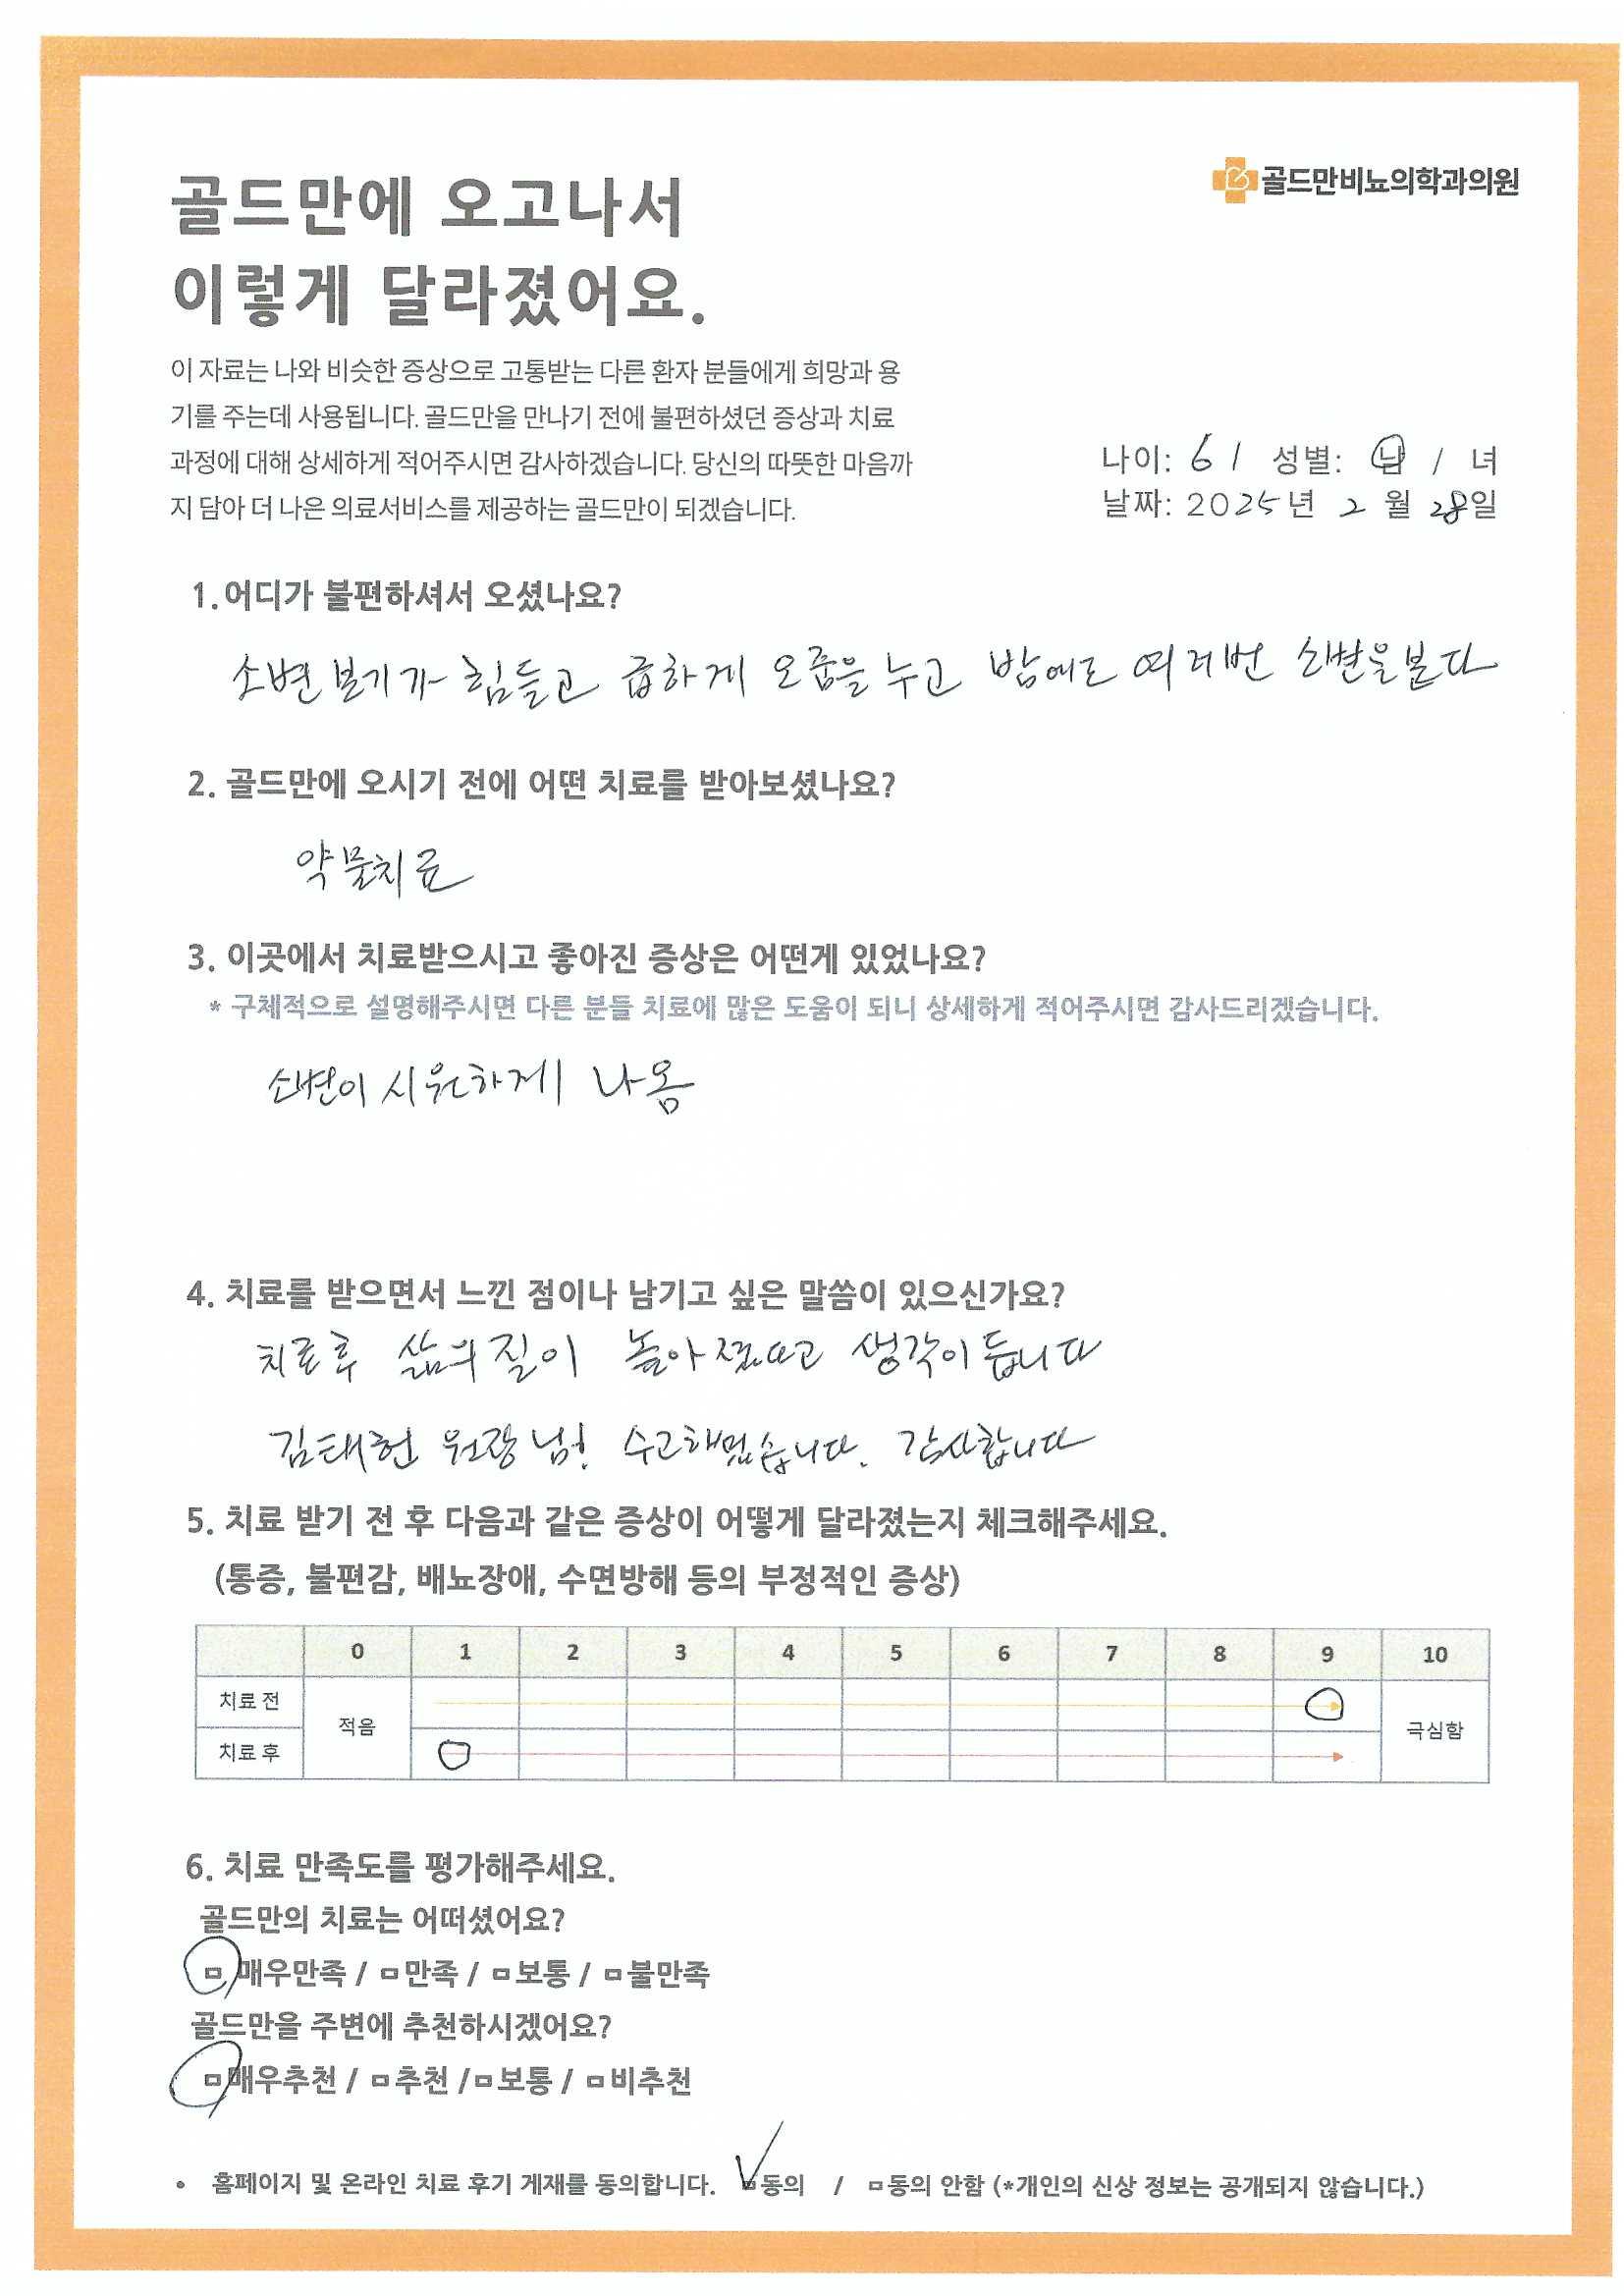 골드만비뇨의학과의원
골드만에 오고나서
이렇게 달라졌어요.
이 자료는 나와 비슷한 증상으로 고통받는 다른 환자 분들에게 희망과 용
기를 주는데 사용됩니다. 골드만을 만나기 전에 불편하셨던 증상과 치료
과정에 대해 상세하게 적어주시면 감사하겠습니다. 당신의 따뜻한 마음까
지 담아 더 나은 의료서비스를 제공하는 골드만이 되겠습니다.
나이: 61 성별: 남 / 녀
날짜: 2025년 2월 28일
1.어디가 불편하셔서 오셨나요?
소변 보기가 힘들고 급하게 오줌을 누고 밤에도 여러번 소변을본다
2. 골드만에 오시기 전에 어떤 치료를 받아보셨나요?
약물치료
3. 이곳에서 치료받으시고 좋아진 증상은 어떤게 있었나요?
* 구체적으로 설명해주시면 다른 분들 치료에 많은 도움이 되니 상세하게 적어주시면 감사드리겠습니다.
소변이 시원하게 나옴
4. 치료를 받으면서 느낀 점이나 남기고 싶은 말씀이 있으신가요?
치료후 삶의 질이 높아졌다고 생각이 듭니다
김태헌 원장님! 수고하셨습니다. 감사합니다
5. 치료 받기 전 후 다음과 같은 증상이 어떻게 달라졌는지 체크해주세요.
(통증, 불편감, 배뇨장애, 수면방해 등의 부정적인 증상)
0 1 2 3 4 5 6 7 8 9 10
치료 전
적음
극심함
치료 후
6. 치료 만족도를 평가해주세요.
골드만의 치료는 어떠셨어요?
□ 매우만족 / □만족 / □보통 / □불만족
골드만을 주변에 추천하시겠어요?
□매우추천 / □추천 /□보통 / □비추천
• 홈페이지 및 온라인 치료 후기 게재를 동의합니다. □동의 / □동의 안함 (*개인의 신상 정보는 공개되지 않습니다.)